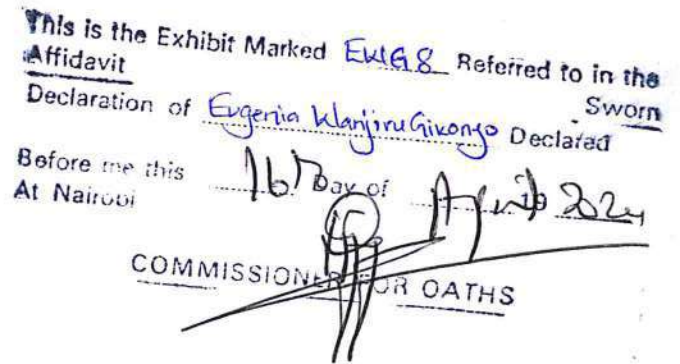 This is the Exhibit Marked EWG 8 Referred to in the
Affidavit Sworn
Declaration of Eugenia Wanjiru Gikonyo Declared
Before me this 16th Day of April 19 2024
At Nairobi
COMMISSIONER FOR OATHS